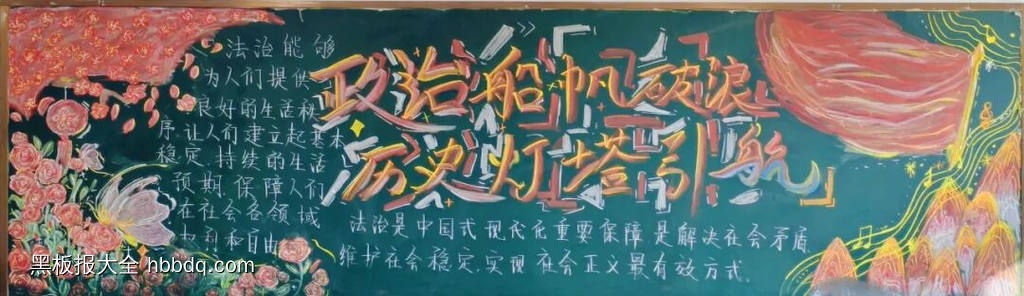 法治能够
为人们提供
良好的生活秩
序,让人们建立起基本
稳定、持续的生活
预期,保障人们
在社会各领域
权利和自由
政治船帆破浪
历史灯塔引航
法治是中国式现代化重要保障是解决社会矛盾
维护社会稳定,实现社会正义最有效方式
黑板报大全 hbbdq.com